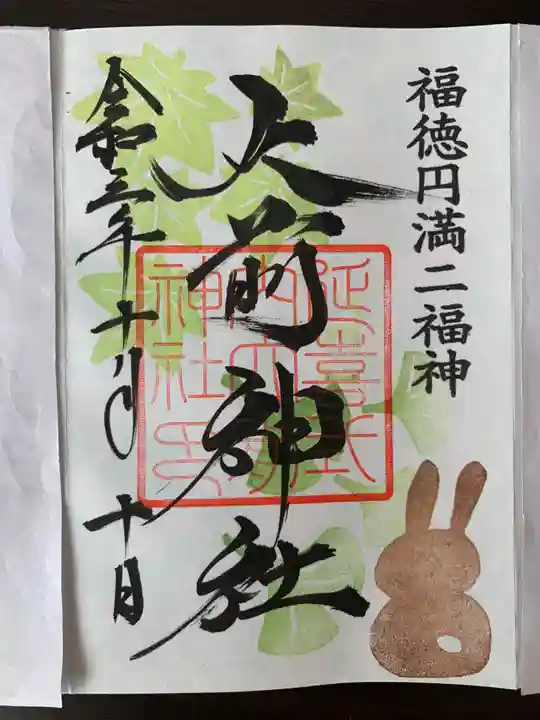 福徳円満二福神
大前神社
延喜式
内大前
神社印
令和三年十月十日